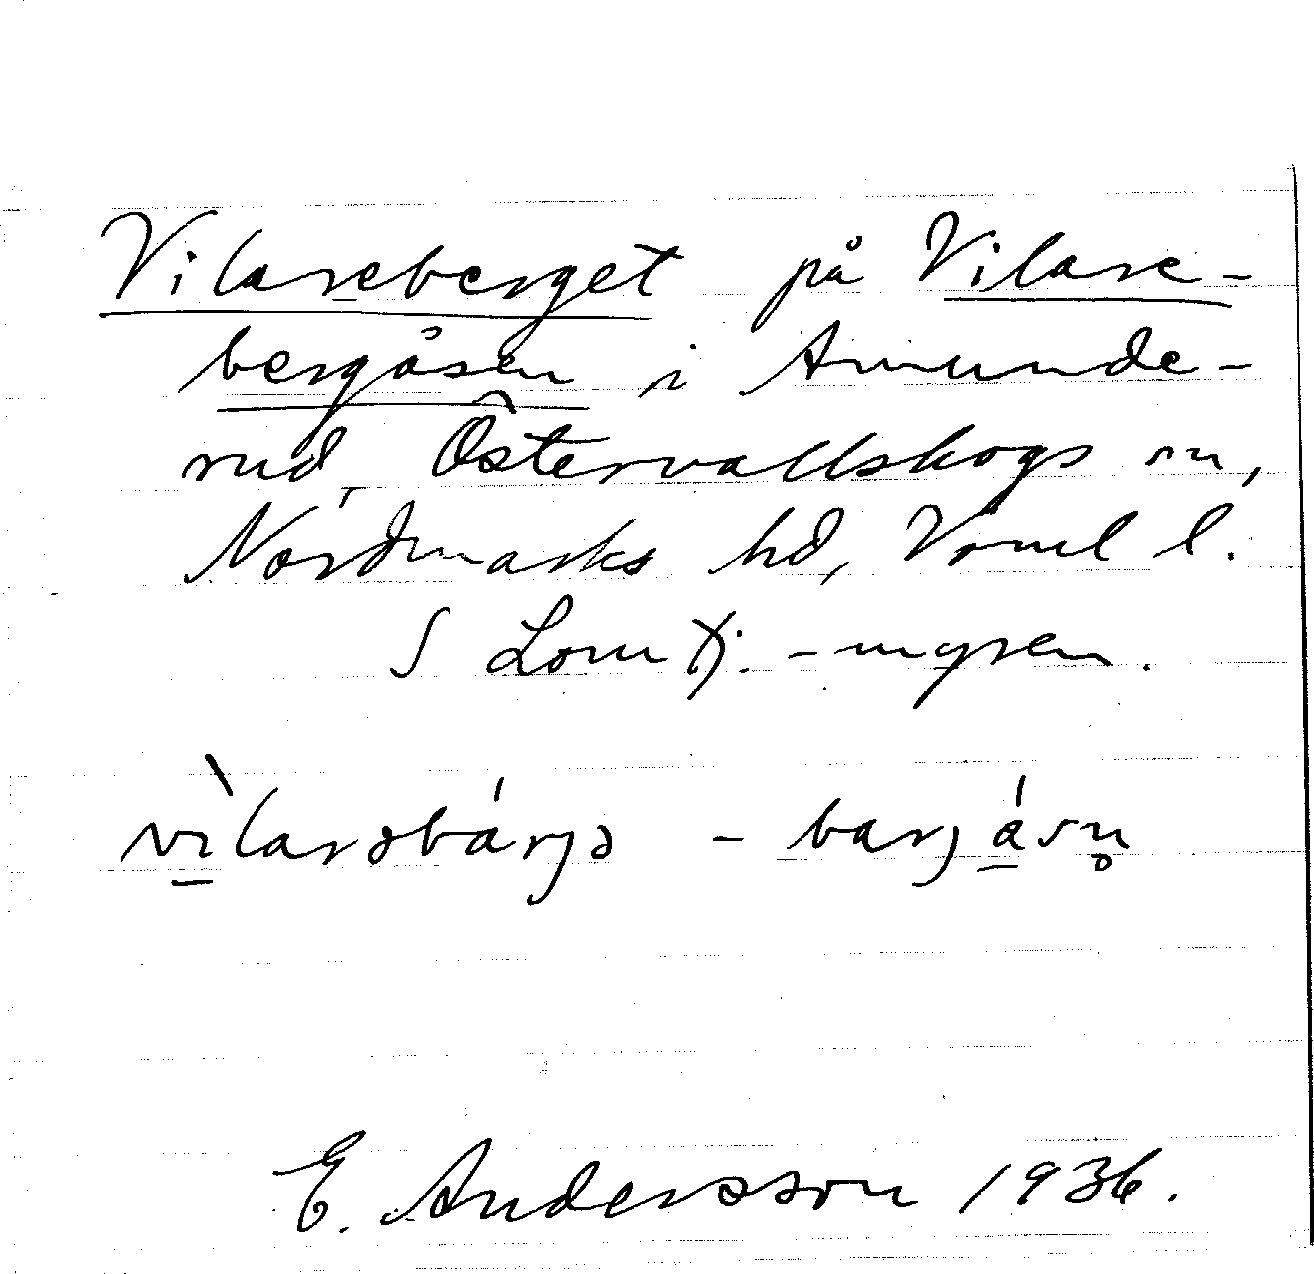 Vilareberget på Vilare-
bergåsen i Amunde-
rud, Östervallskogs sn,
Nordmarks hd, Vrml l.
S Lomtj. -myren.
vìlarəbárjə - barjásn̥
E. Andersson 1936.